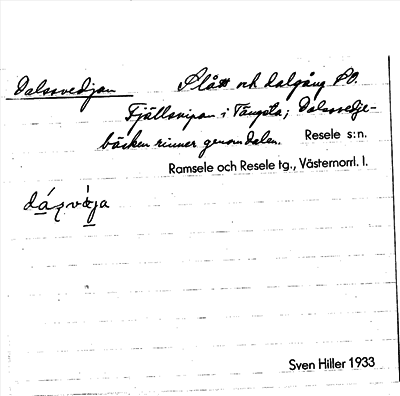 Dalssvedjan
Slått och dalgång SO.
Fjällsvipan i Tängsta; Dalssvedje-
bäcken rinner genom dalen. Resele s:n.
Ramsele och Resele tg., Västernorrl. l.
Sven Hiller 1933